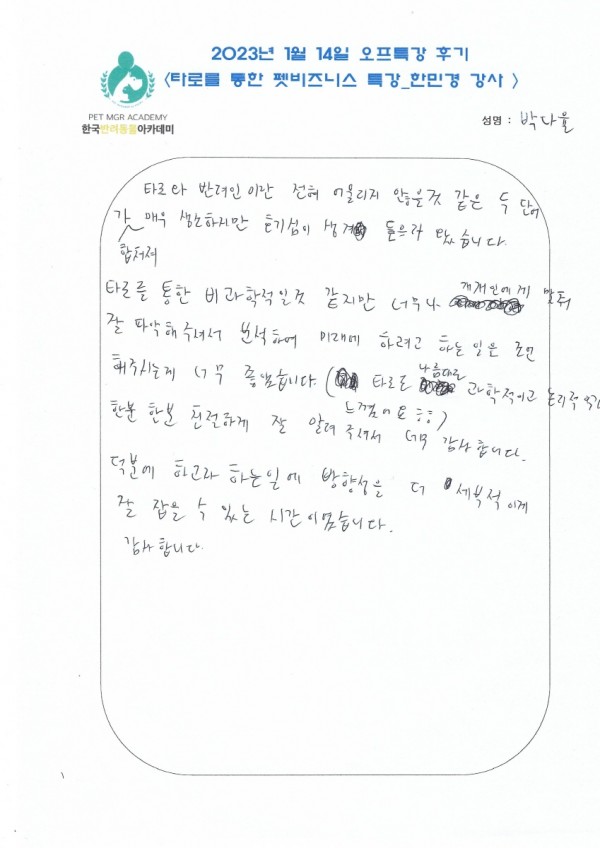 2023년 1월 14일 오프특강 후기
<타로를 통한 펫비즈니스 특강_한민경 강사 >
PET MGR ACADEMY
한국반려동물아카데미
성명 : 박다율
타로와 반려인이란 전혀 어울리지 않을것 같은 두 단어
가 매우 생소하지만 호기심이 생겨 들으러 왔습니다.
합쳐져
타로를 통한 비과학적일것 같지만 너무나 개개인에게
잘 파악해주셔서 분석하여 미래에 하려고 하는 일은 조언
해주시는게 너무 좋았습니다. ( 타로도 나름대로 과학적이고 논리적
느꼈어요 ㅎㅎ)
한분 한분 친절하게 잘 알려 주셔서 너무 감사합니다.
덕분에 하고자 하는일에 방향성을 더 세부적이게
잘 잡을 수 있는 시간이었습니다.
감사합니다.